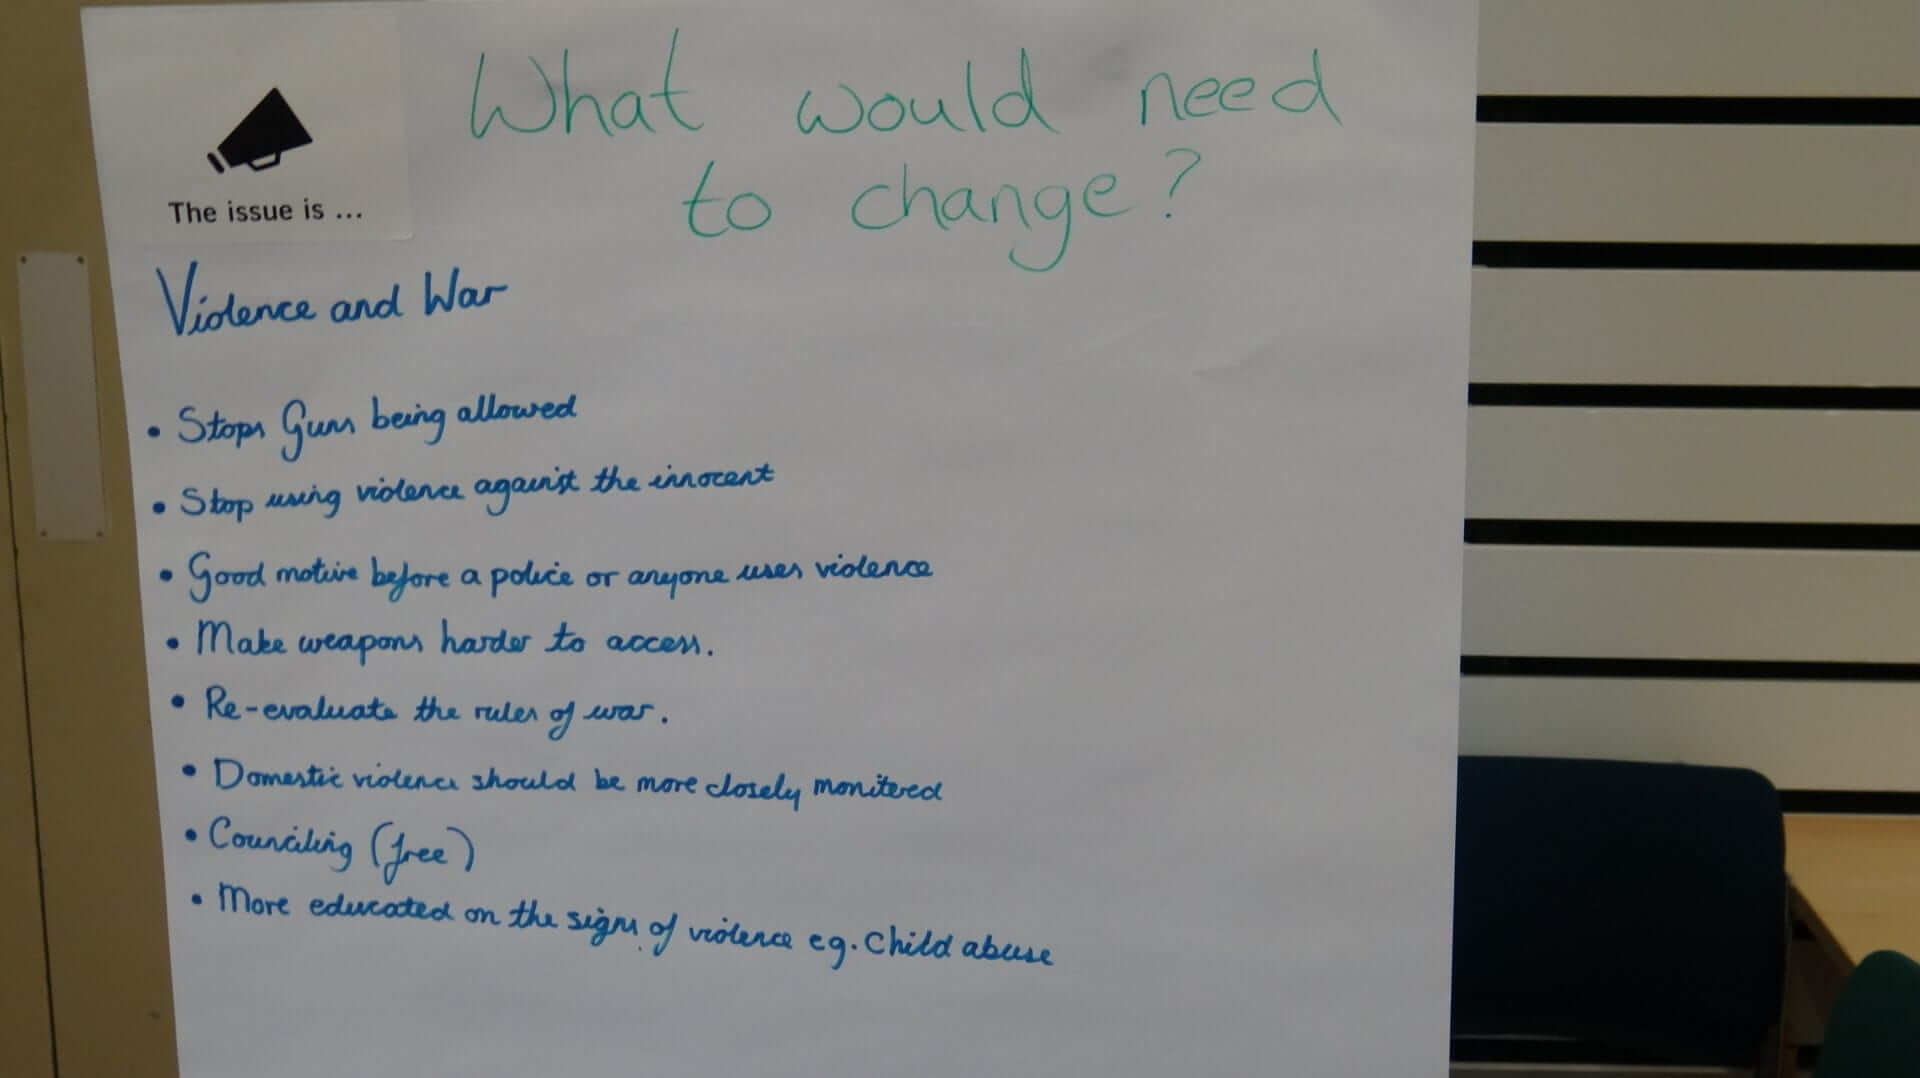 What would need
to change?
The issue is ...
Violence and War
• Stops Guns being allowed
• Stop using violence against the innocent
• Good motive before a police or anyone uses violence
• Make weapons harder to access.
• Re-evaluate the rules of war.
• Domestic violence should be more closely monitered
• Counciling (free)
• More educated on the signs of violence eg. Child abuse